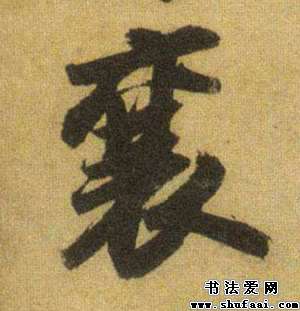 襄
书法爱网
www.shufaai.com